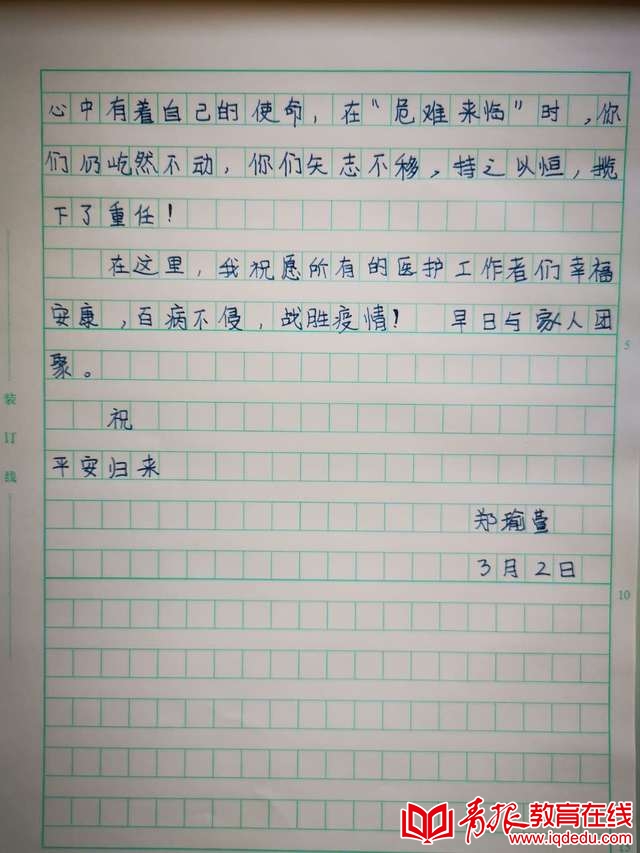 心中有着自己的使命，在“危难来临”时，你
们仍屹然不动，你们矢志不移，持之以恒，揽
下了重任！
在这里，我祝愿所有的医护工作者们幸福
安康，百病不侵，战胜疫情！ 早日与家人团
聚。
5
祝
平安归来
郑瑜萱
3月2日
10
装
订
线
青报教育在线
www.iqdedu.com